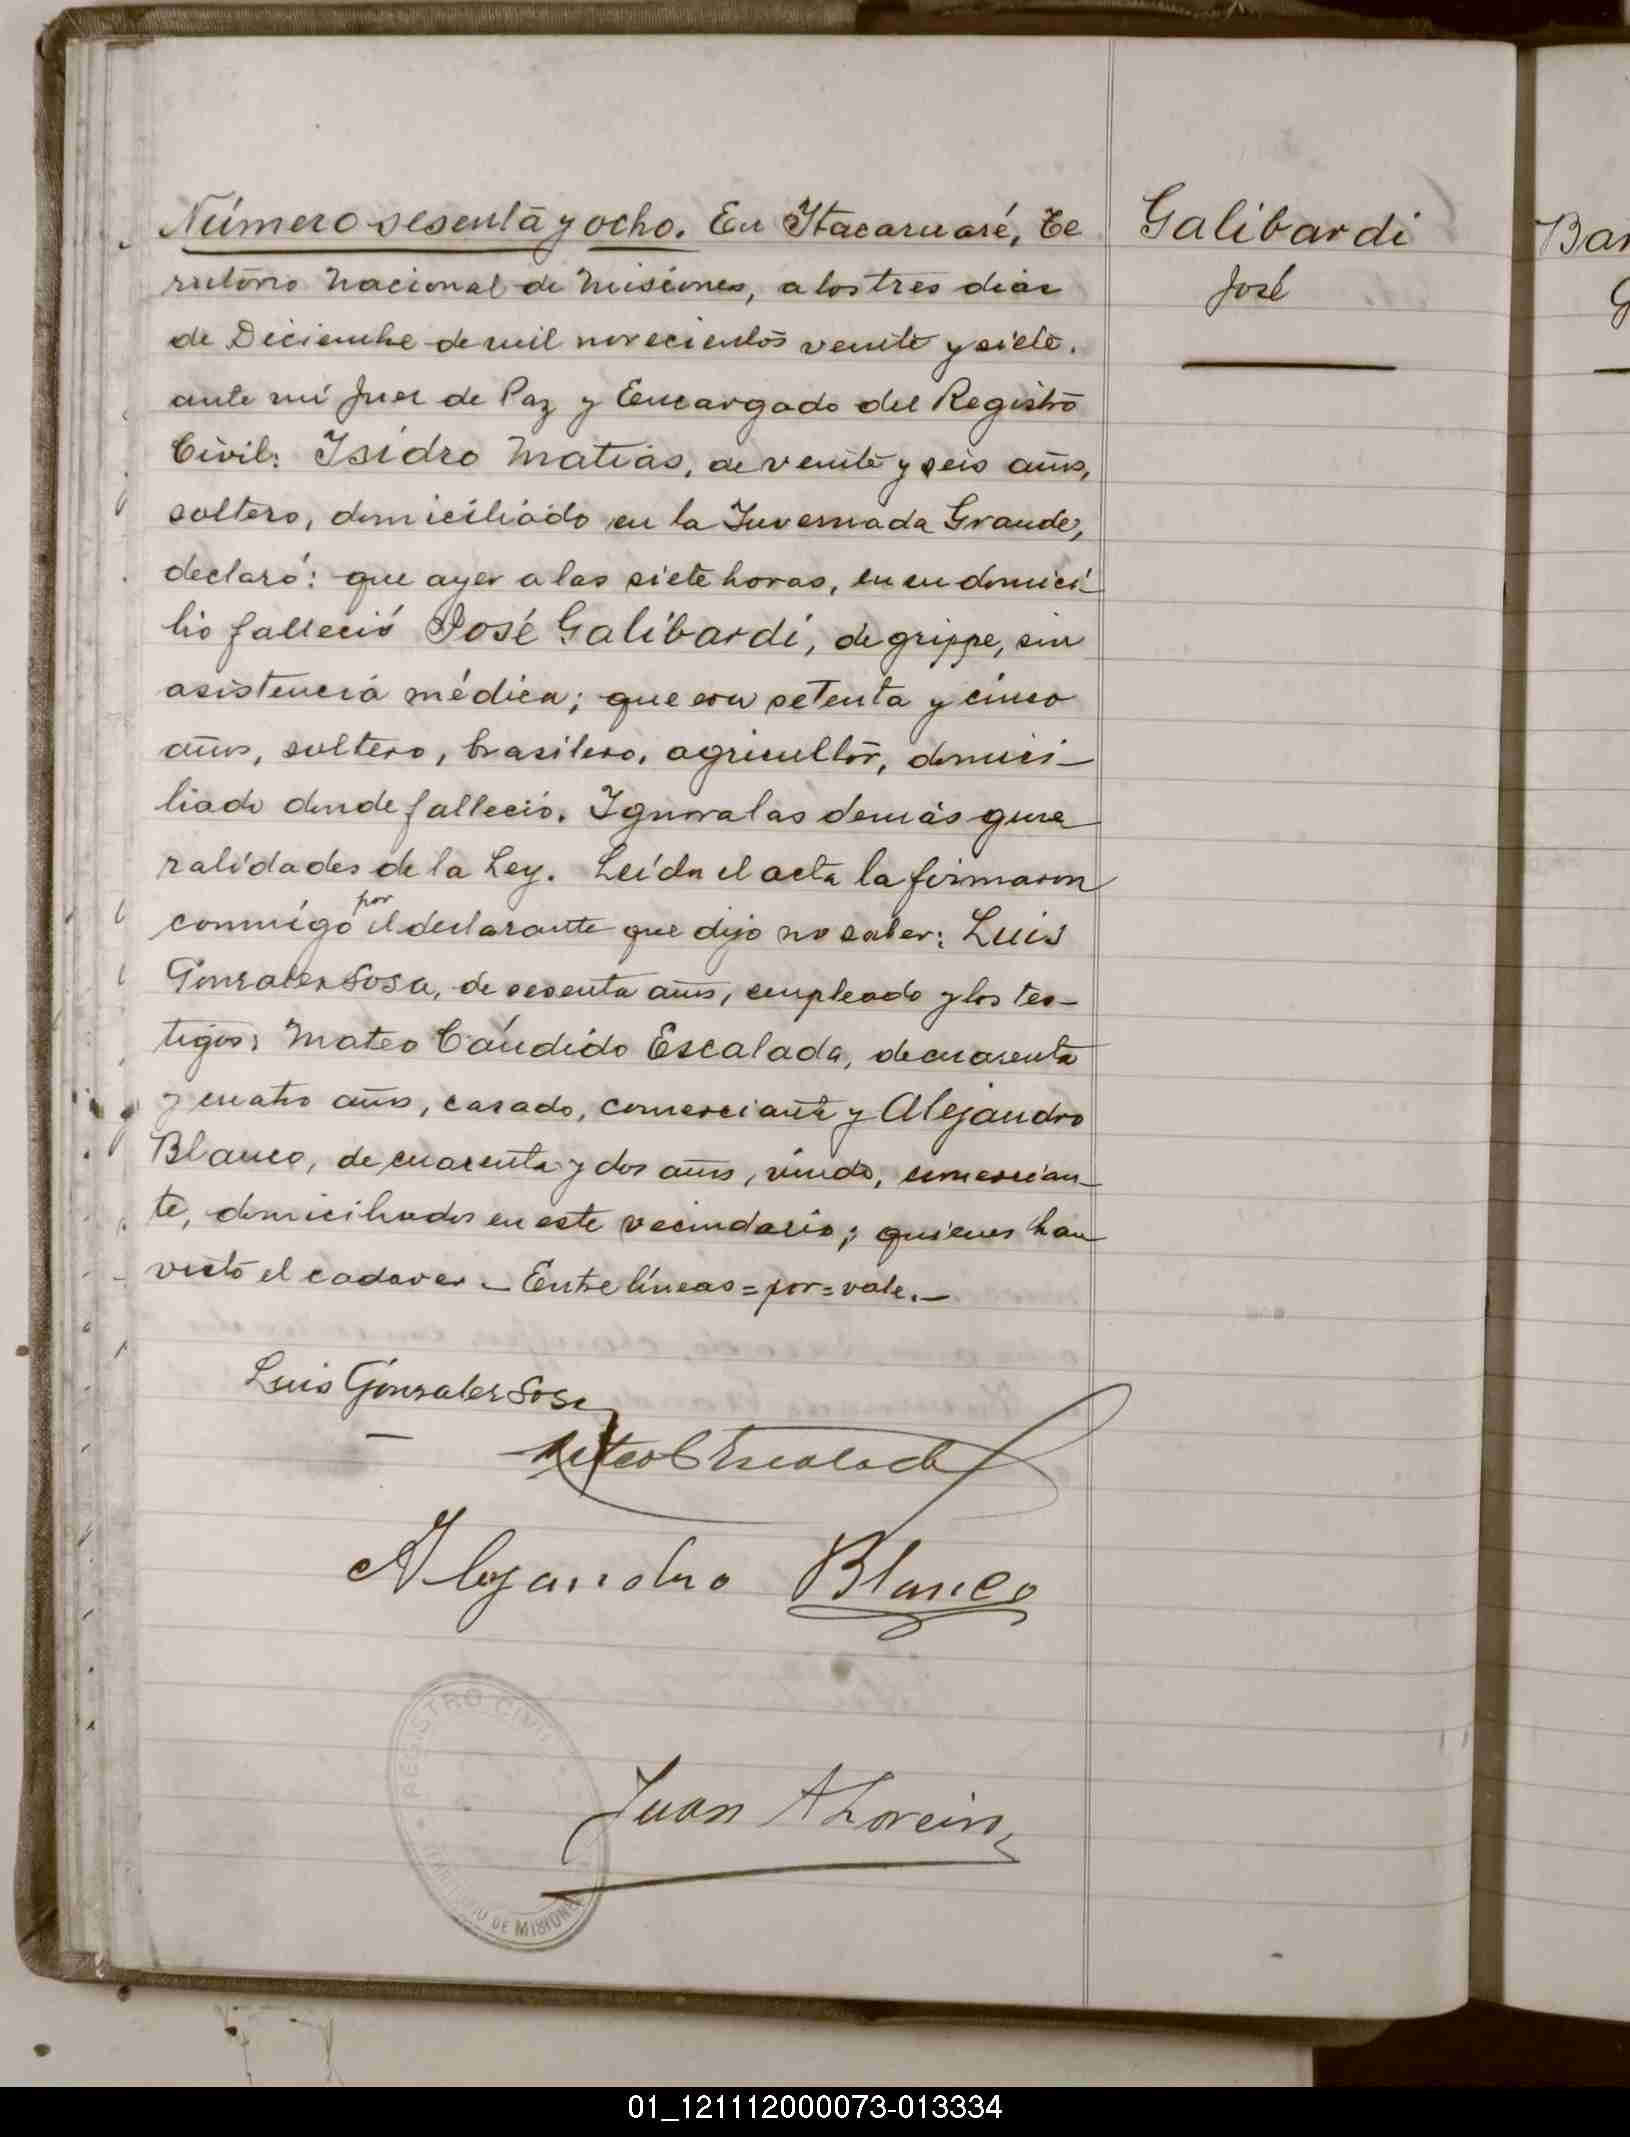 Número sesenta y ocho. En Itacaruaré, Te
rritorio Nacional de Misiones, a los tres dias
de Diciembre de mil novecientos veinte y siete.
ante mi Juez de Paz y Encargado del Registro
Civil: Isidro Matias, de veinte y seis años,
soltero, domiciliado en la Invernada Grande,
declaró: que ayer a las siete horas, en su domici-
lio falleció José Galibardi, de grippe, sin
asistencia médica; que era setenta y cinco
años, soltero, brasilero, agricultor, domici-
liado donde falleció. Ignora las demás gene
ralidades de la Ley. Leída el acta la firmaron
conmigo por el declarante que dijo no saber: Luis
Gonzalez Sosa, de sesenta años, empleado y los tes-
tigos: Mateo Cándido Escalada, de cuarenta
y cuatro años, casado, comerciante y Alejandro
Blanco, de cuarenta y dos años, viudo, comercian-
te, domiciliados en este vecindario; quienes han
visto el cadaver - Entre líneas = por = vale. -
Galibardi
José
Bar
G
Luis Gonzalez Sosa
Mateo C Escalada
Alejandro Blanco
REGISTRO CIVIL
DE MISIONES
Juan A Loreiro
01_121112000073-013334